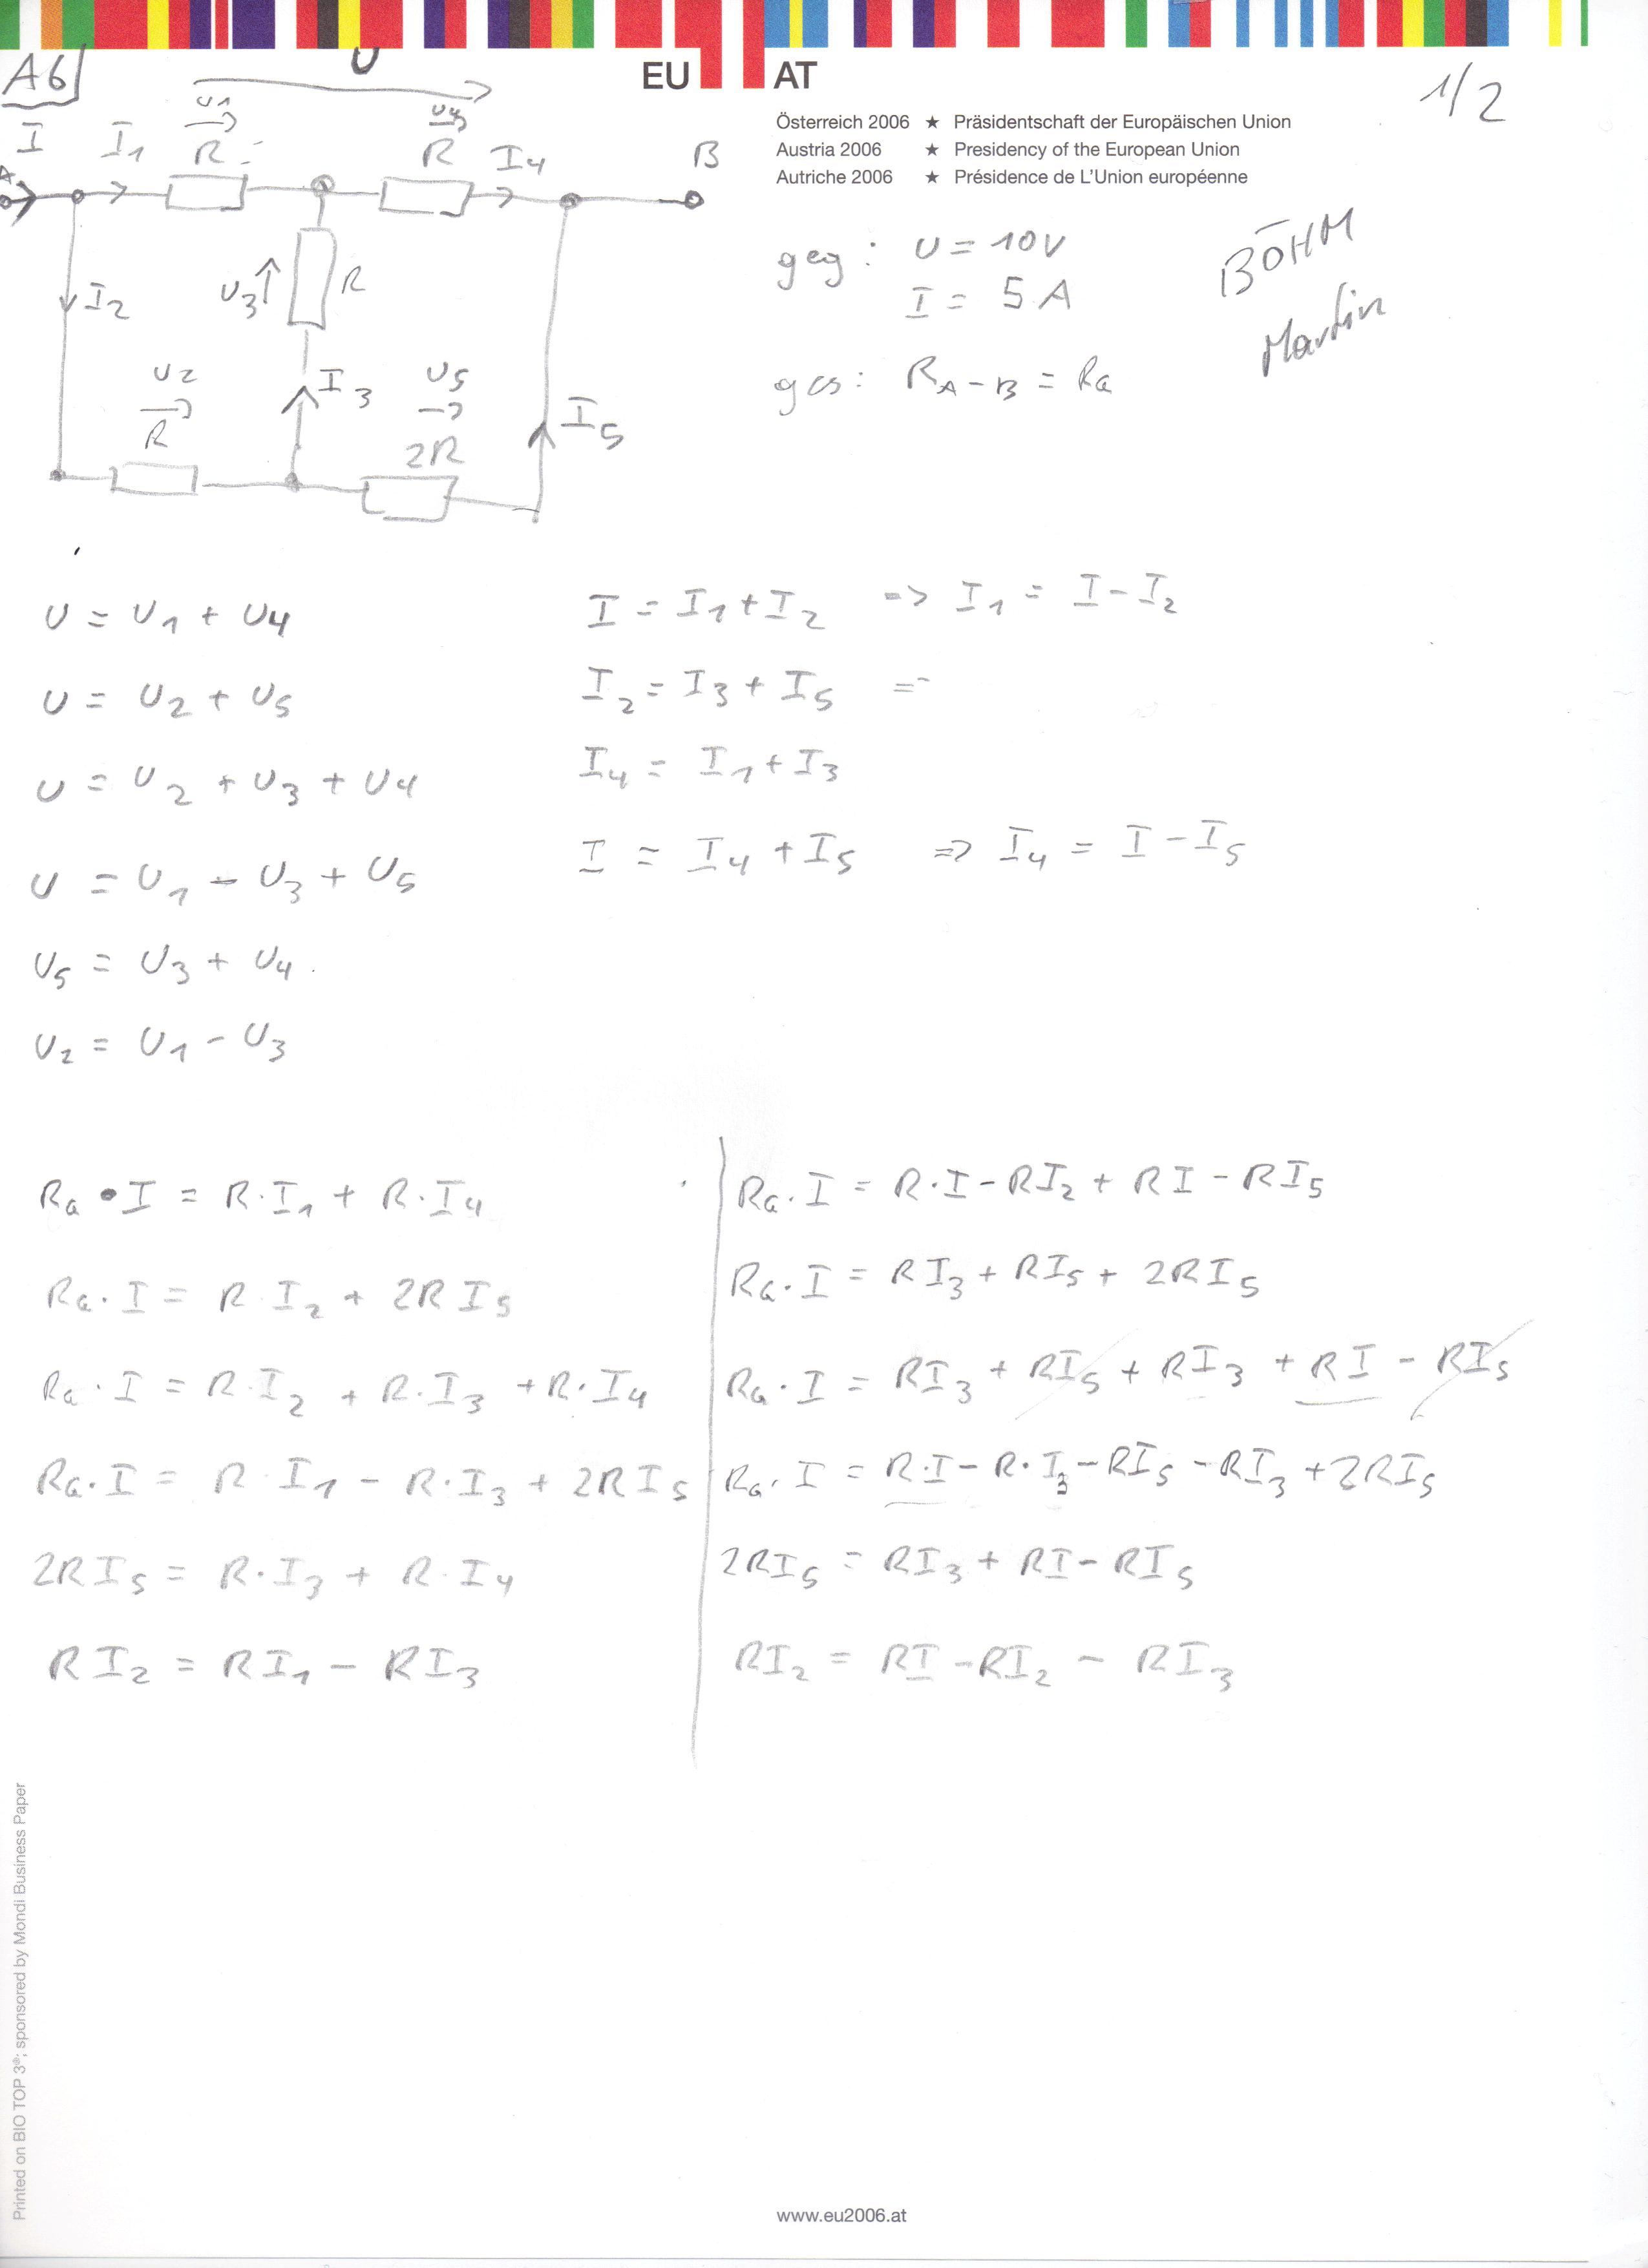 A6
U
EU AT
1/2
Österreich 2006 ★ Präsidentschaft der Europäischen Union
Austria 2006 ★ Presidency of the European Union
Autriche 2006 ★ Présidence de L'Union européenne
U1 U4
I I1 R R I4 B
A
I2 U3 R
geg: U = 10V
I = 5 A
BÖHM
Martin
ges: R_A-B = Ra
U2 I3 U5
R 2R I5
U = U1 + U4
I = I1 + I2 => I1 = I - I2
U = U2 + U5
I2 = I3 + I5 =>
U = U2 + U3 + U4
I4 = I1 + I3
U = U1 - U3 + U5
I = I4 + I5 => I4 = I - I5
U5 = U3 + U4
U2 = U1 - U3
Ra · I = R·I1 + R·I4
Ra · I = R I2 + 2R I5
Ra · I = R·I2 + R·I3 + R·I4
Ra · I = R I1 - R·I3 + 2R I5
2R I5 = R·I3 + R·I4
R I2 = R I1 - R I3
Ra · I = R·I - RI2 + RI - RI5
Ra · I = RI3 + RI5 + 2RI5
Ra · I = RI3 + RI5 + RI3 + RI - RI5
Ra · I = R·I - R·I3 - RI5 - RI3 + 2RI5
2RI5 = RI3 + RI - RI5
RI2 = RI - RI2 - RI3
Printed on BIO TOP 3®; sponsored by Mondi Business Paper
www.eu2006.at